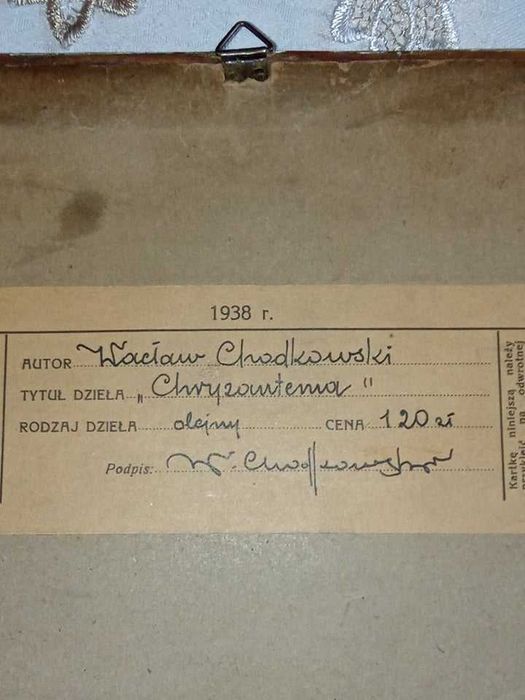 1938 r.
AUTOR Wacław Chodkowski
TYTUŁ DZIEŁA „Chryzantema"
RODZAJ DZIEŁA olejny CENA 120 zł
Podpis: W. Chodkowski
Kartkę niniejszą należy
przykleić na odwrotnej